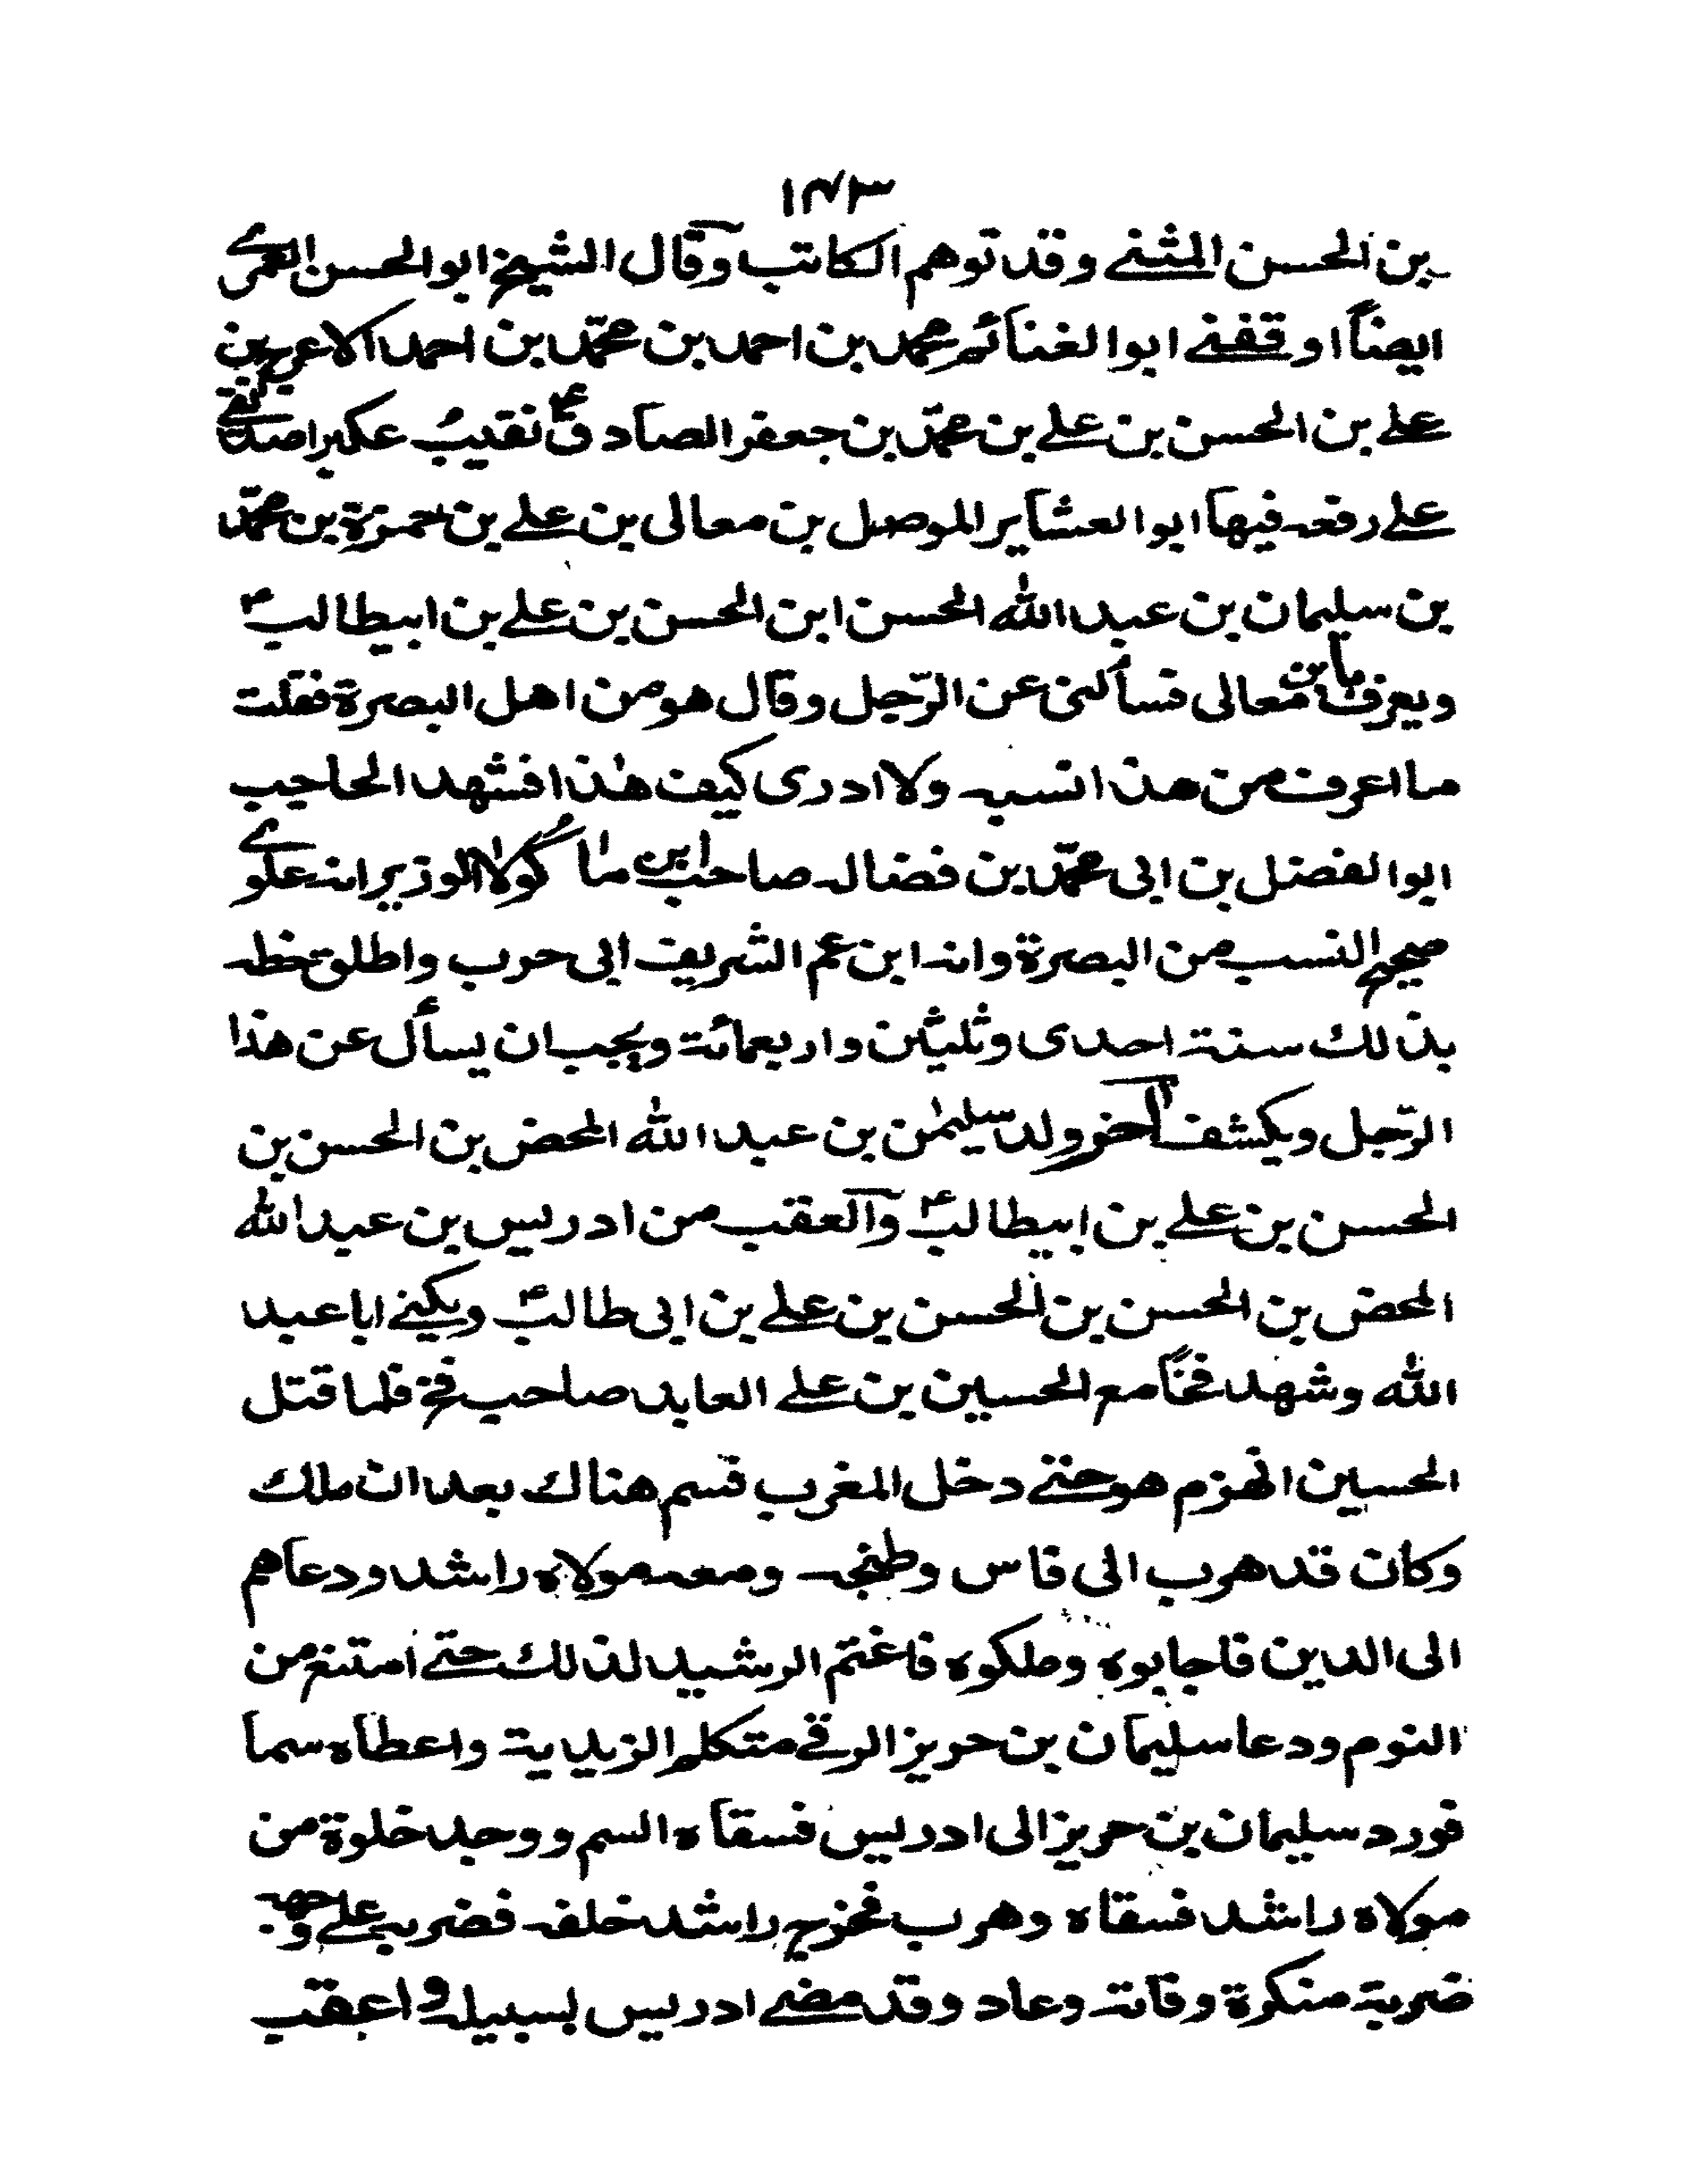 ١٧٣
بن الحسن المثنے وقد توهم الكاتب وقال الشيخ ابوالحسن العمرے
ايضاً اوقفنے ابوالغنائم محمد بن احمد بن محمّد بن احمد الاعرج بن
علے بن الحسن بن علے بن محمّد بن جعفر الصادقؑ نقيب عكبرا صديقے
علے رقعه فيها ابوالعشاير الموصل بن معالى بن علے بن حمزة بن محمّد
بن سليمان بن عبدالله الحسن ابن الحسن بن علے بن ابيطالبؑ
ويعرف بابن معالى فسألنى عن الرّجل وقال هو من اهل البصرة فقلت
ما اعرف من هذا نسبه ولا ادرى كيف هٰذا فشهد الحاجب
ابوالفضل بن ابى محمّد بن فضاله صاحب ابن ماكولا الوزير انه علوے
صحيح النسب من البصرة وانه ابن عم الشريف ابى حرب واطلق خطه
بذلك سنة احدى وثلثين واربعمائة ويجب ان يسأل عن هذا
الرّجل ويكشف آخر ولد سليمٰن بن عبدالله المحض بن الحسن بن
الحسن بن علے بن ابيطالبؑ والعقب من ادريس بن عبدالله
المحض بن الحسن بن الحسن بن علے بن ابى طالبؑ ويكنے ابا عبد
الله وشهد فخّاً مع الحسين بن علے العابد صاحب فخ فلما قتل
الحسين انهزم هو حتے دخل المغرب فسم هناك بعد ان ملك
وكان قد هرب الى فاس وطنجه ومعه مولاه راشد ودعاهم
الى الدين فاجابوه وملكوه فاغتم الرشيد لذلك حتے امتنع من
النوم ودعا سليمان بن حريز الرقے متكلم الزيدية واعطاه سما
فورد سليمان بن حريز الى ادريس فسقاه السم ووجد خلوة من
مولاه راشد فسقاه وهرب فخرج راشد خلفه فضربه علے وجهه
ضربة منكرة وفاته وعاد وقد مضے ادريس لسبيله واعقب